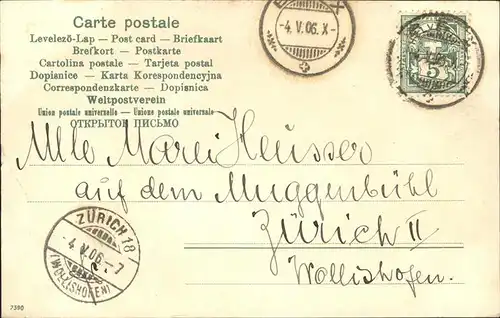 Carte postale
Levelező-Lap — Post card — Briefkaart
Brefkort — Postkarte
Cartolina postale — Tarjeta postal
Dopisnice — Karta Korespondencyjna
Correspondenzkarte — Dopisnica
Weltpostverein
Union postale universelle — Unione postale universale
ОТКРЫТОЕ ПИСЬМО
-4.V.06.X-
5
Mlle Marei Heusser
auf dem Muggenbühl
Zürich II
Wollishofen.
ZÜRICH 18
-4.V.06.-7
(WOLLISHOFEN)
7390